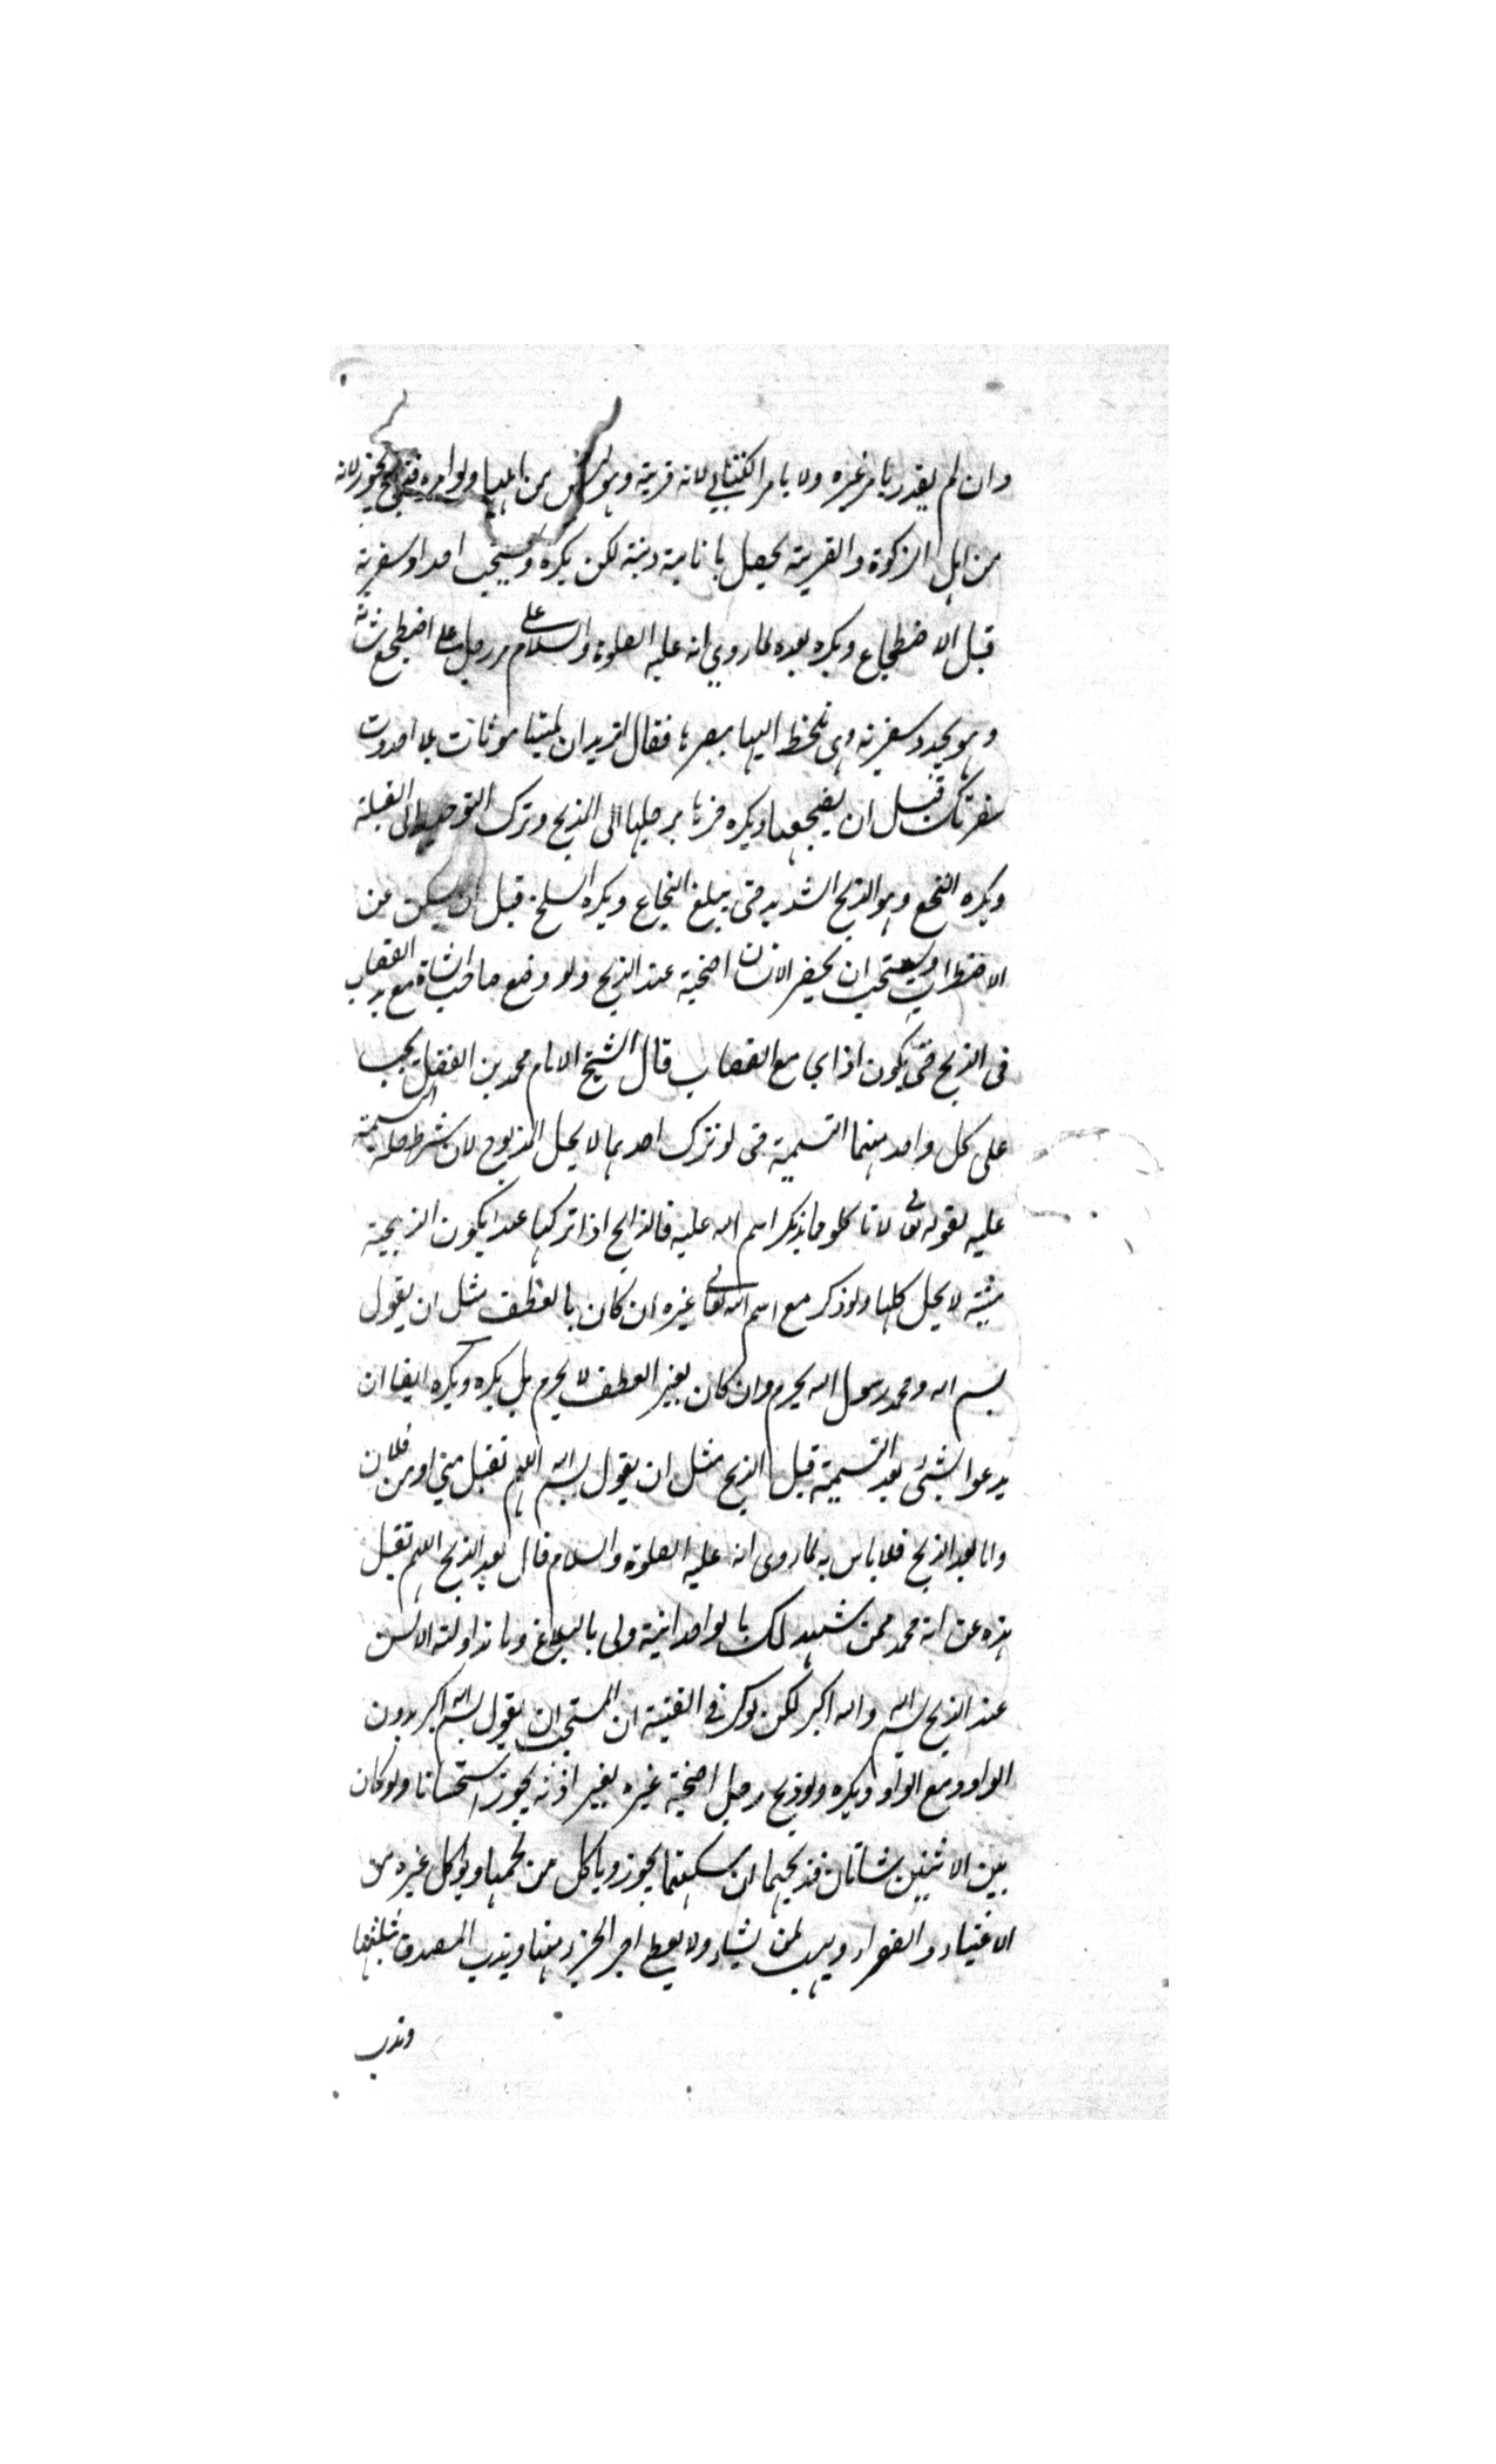 وان لم يقدر يامر غيره ولا يامر الكتابي لانه قربة وهو ليس من اهلها ولو امره فذبح يجوز لانه
من اهل الزكوة والقربة يحصل بانابته ونيته لكن يكره ويستحب احداد شفرته
قبل الاضطجاع ويكره بعده لما روي انه عليه الصلوة والسلام مر رجل على اضطجع شاته
وهو يحدد شفرته وهى تلحظ اليها ببصرها فقال اتريد ان تميتها موتات هلا احددت
شفرتك قبل ان يضجعها ويكره جرها برجلها الى الذبح وترك التوجيه الى القبلة
ويكره النخع وهو الذبح الشديد حتى يبلغ النخاع ويكره السلخ قبل ان يسكن عن
الاضطراب ويستحب ان يحضر الانسان اضحية عند الذبح ولو وضع صاحب الشاة مع يد القصاب
فى الذبح حتى يكون اذابح مع القصاب قال الشيخ الامام محمد بن الفضل يجب
على كل واحد منهما التسمية حتى لو ترك احدهما لا يحل المذبوح لان شرط حله التسمية
عليه لقوله تعالى لا تاكلو مما لم يذكر اسم الله عليه فالذابح اذا تركها عمدا يكون الذبيحة
ميتة لا يحل اكلها ولو ذكر مع اسم الله تعالى غيره ان كان بالعطف مثل ان يقول
بسم الله ومحمد رسول الله يحرم وان كان بغير العطف لا يحرم بل يكره ويكره ايضا ان
يدعوا بشئ بعد التسمية قبل الذبح مثل ان يقول بسم الله اللهم تقبل مني او من فلان
واما بعد الذبح فلا باس به لما روى انه عليه الصلوة والسلام قال بعد الذبح اللهم تقبل
هذه عن امة محمد ممن شهد لك بالواحدانية ولى بالبلاغ وما تداولته الالسن
عند الذبح بسم الله والله اكبر لكن ذكر في القنية ان المستحب ان يقول بسم الله اكبر بدون
الواو ومع الواو ويكره ولو ذبح رجل اضحية غيره بغير اذنه يجوز استحسانا ولو كان
بين الاثنين شاتان فذبحهما ان سكتهما يجوز وياكل من لحمها ويوكل غيره من
الاغنياء والفقراء ويهب لمن يشاء ولا يعطي اجر الجزار منها ويندب التصدق بثلثها
وندب